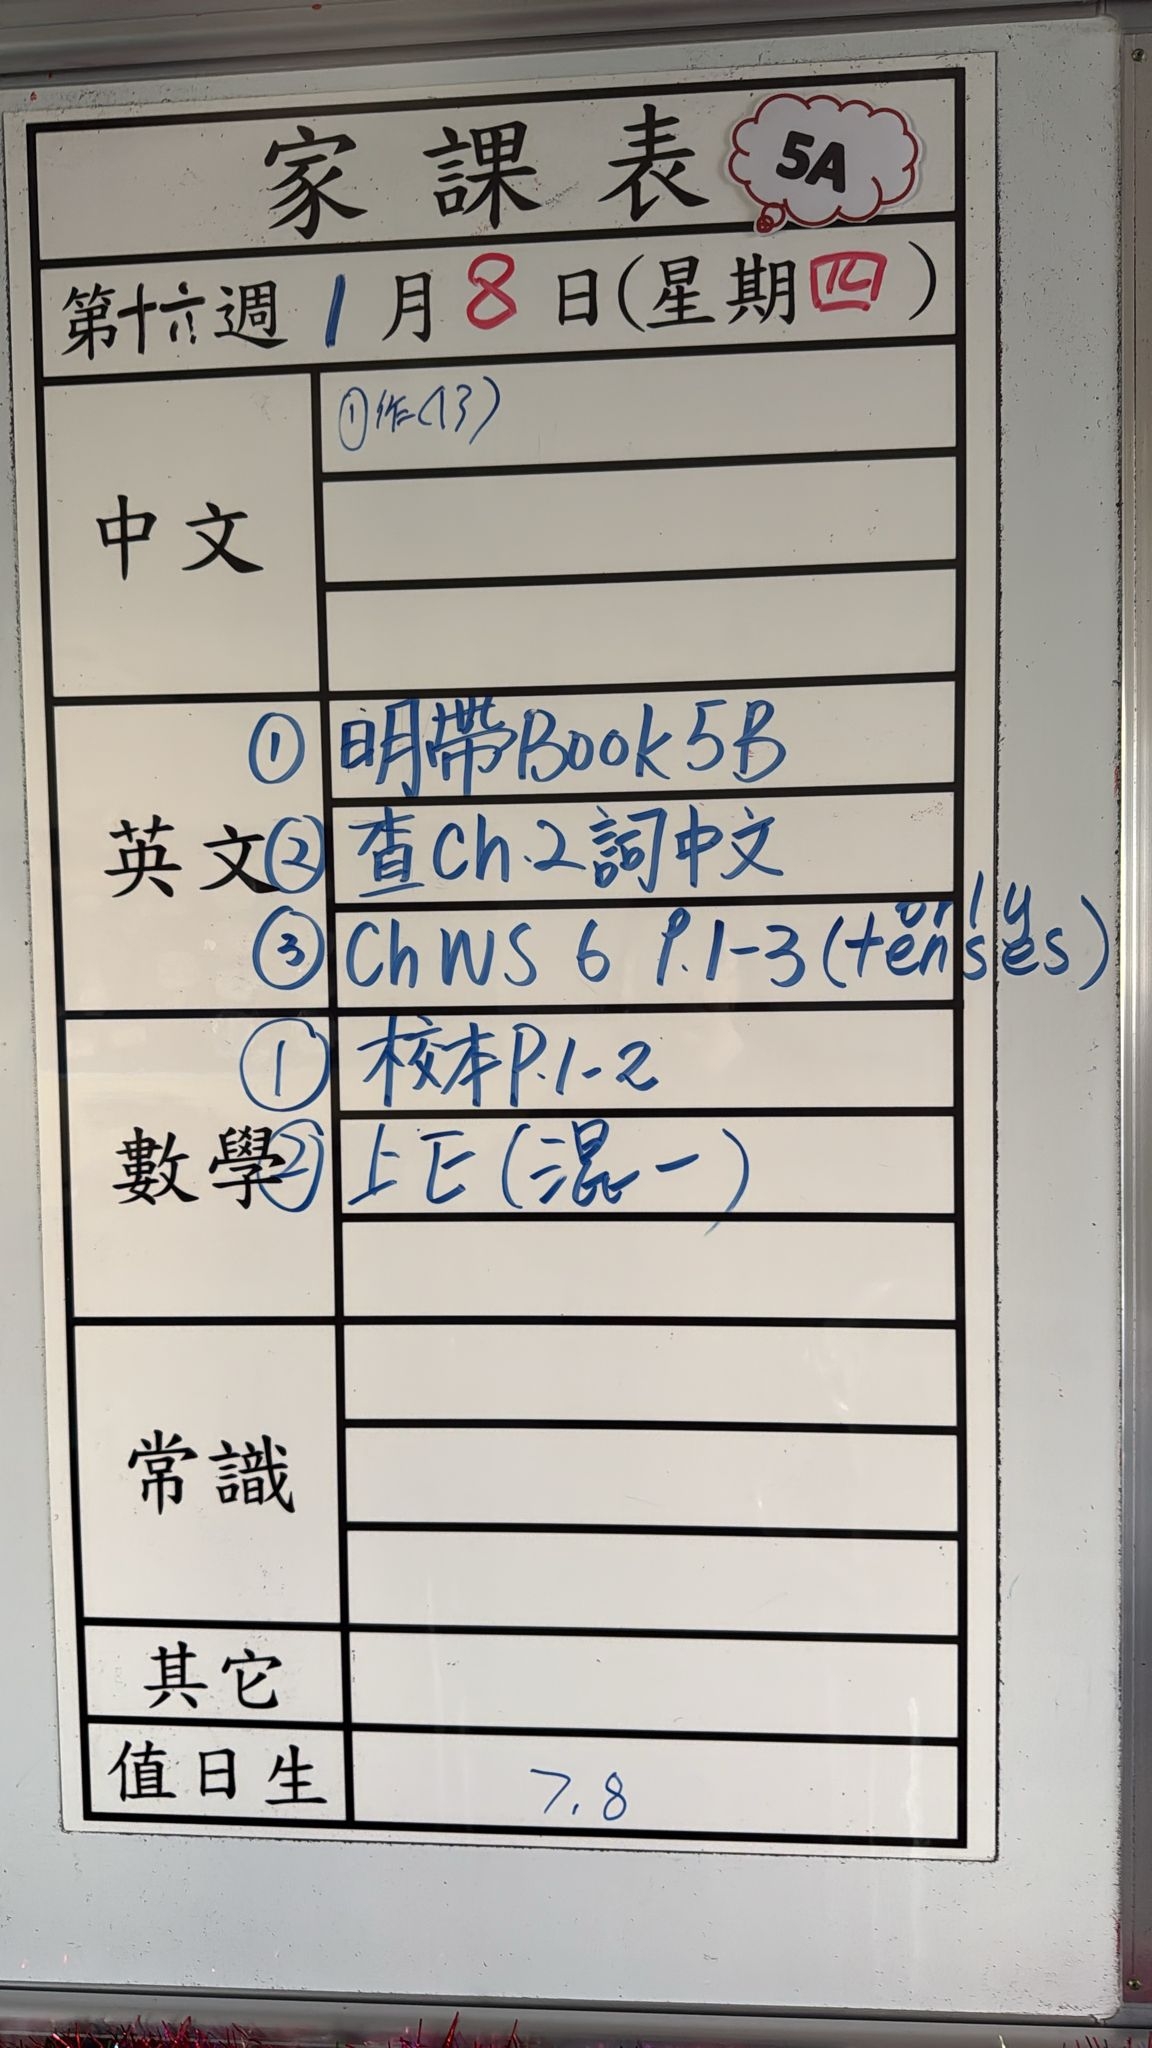 家課表 5A
第十六週 1月8日(星期四)
中文
①作(13)
英文
①明帶Book 5B
②查Ch.2詞中文
③Ch WS 6 P.1-3 (tenses only)
數學
①校本P.1-2
②上E(混一)
常識
其它
值日生
7.8